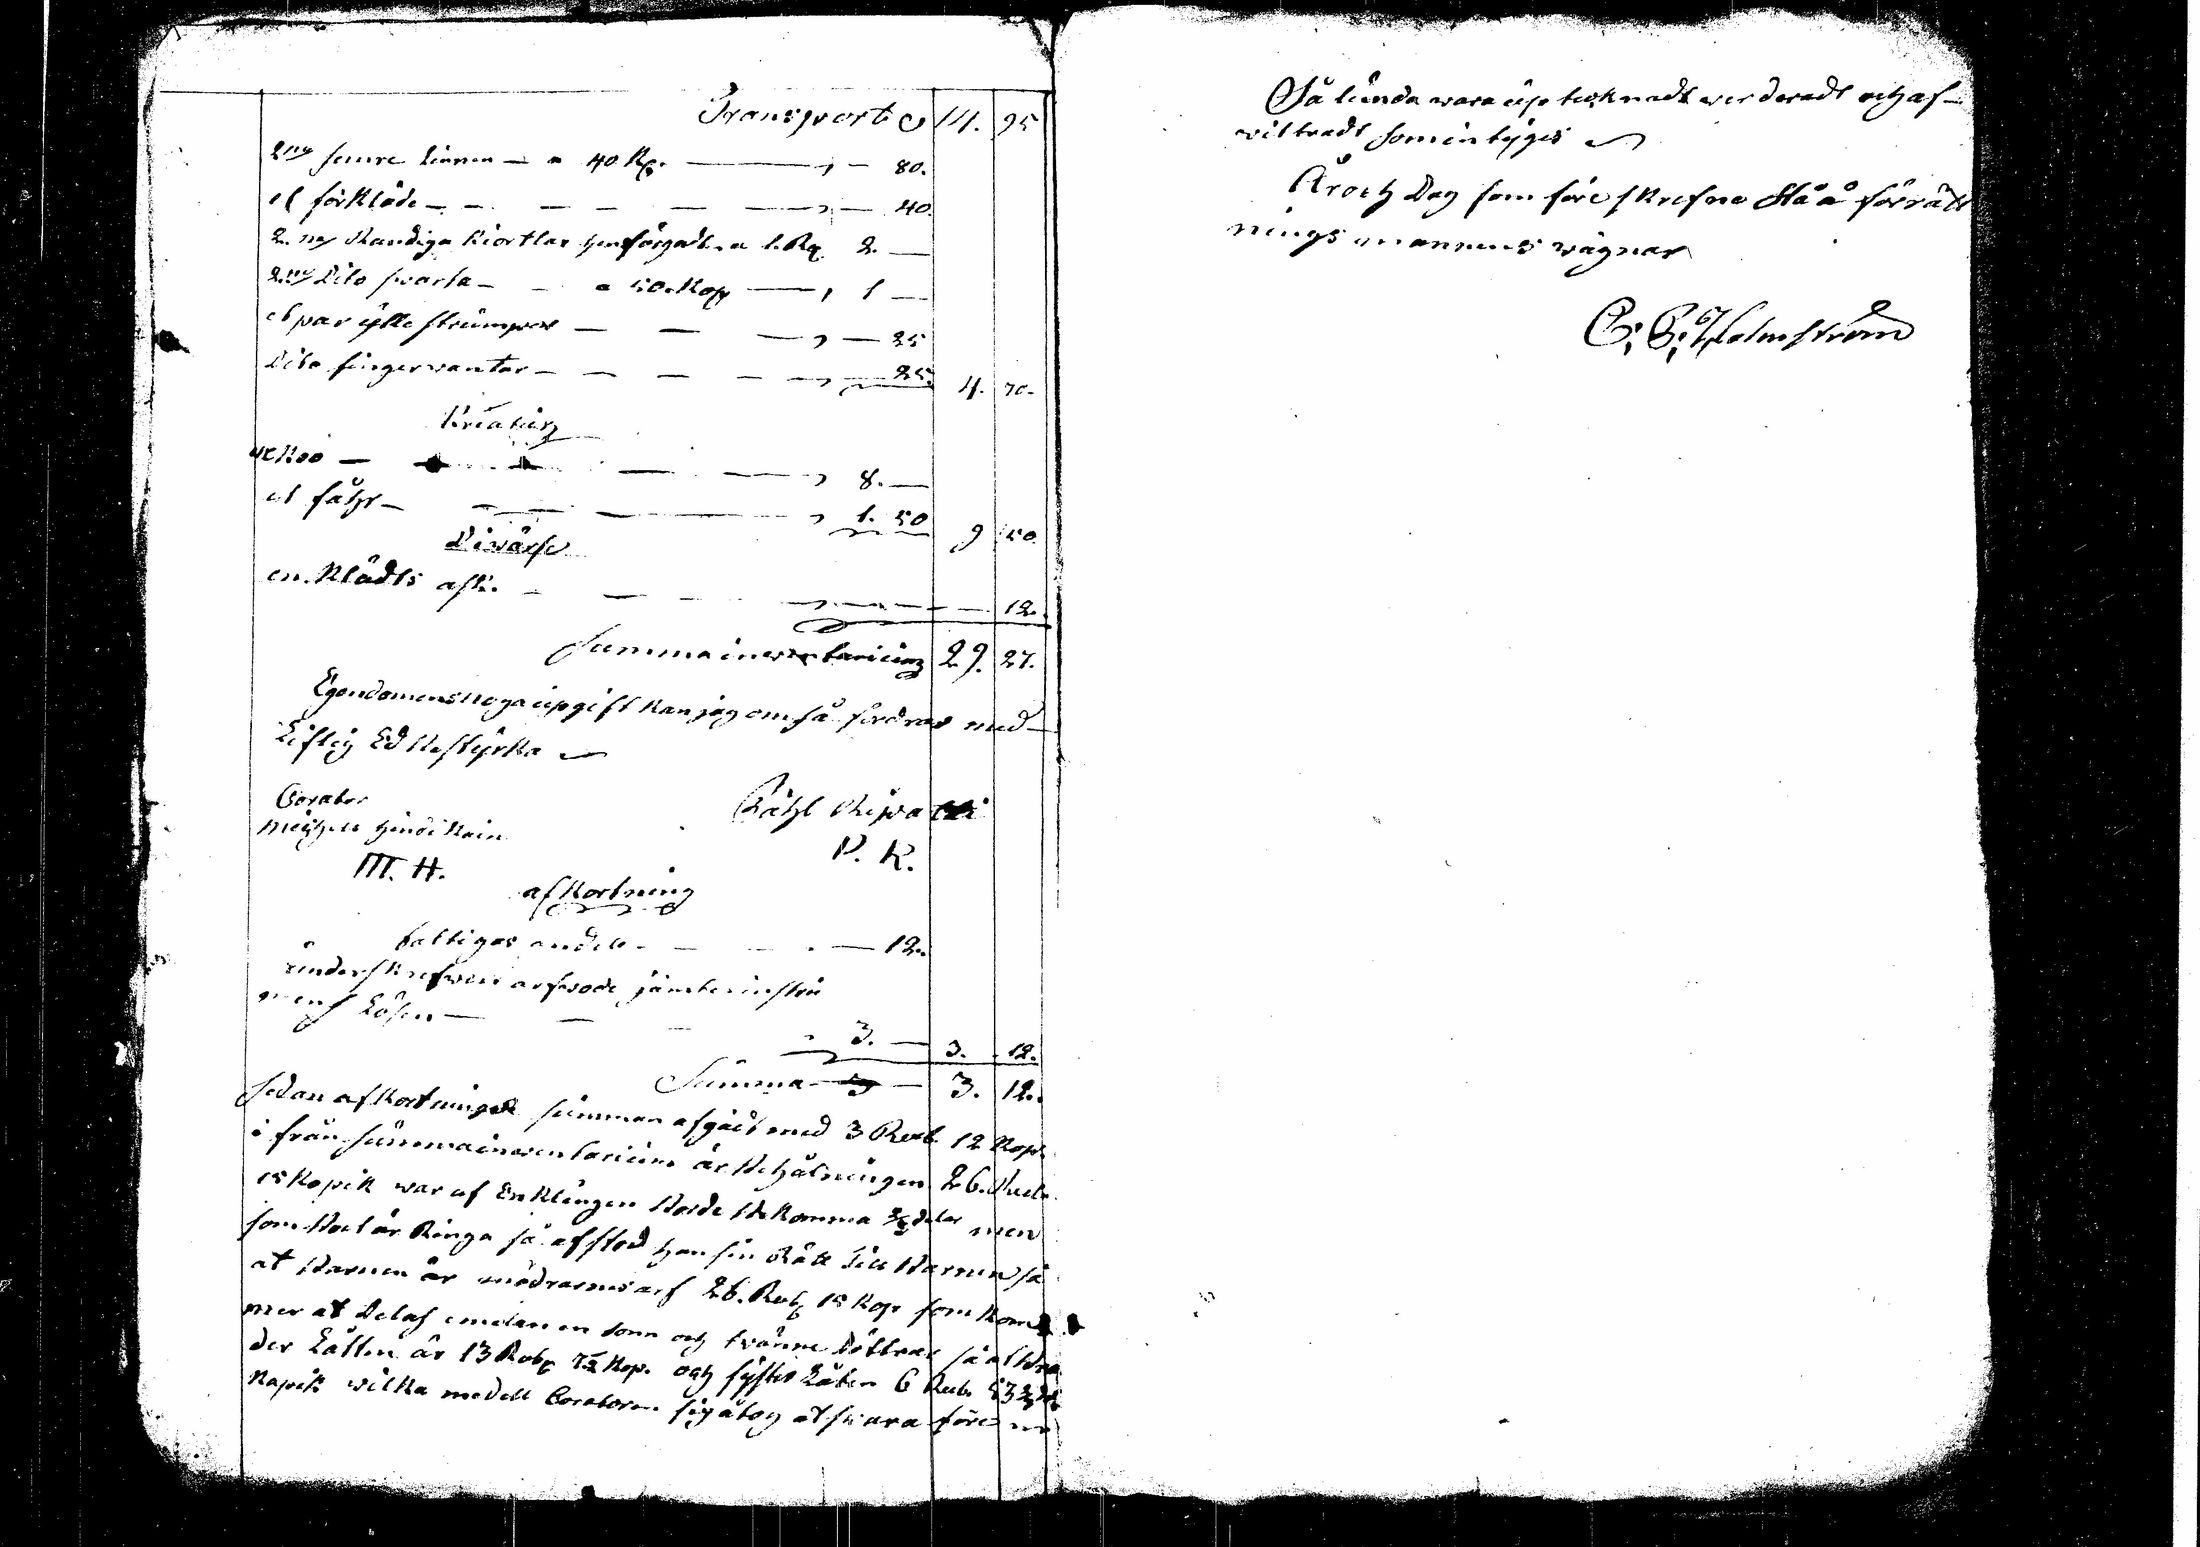 Transport 14. 95
2ne semre Linnen — a 40 Kp. — 80.
et förKläde — 40.
2. ne Randiga Kiortlar a 1. Rub 2. —
2ne Dito swarta — a 50. Kop — 1 —
et par ylle strumpor — 25
Dito fingervantar — 25. 4. 70.
Kreatur
Koo — 8. —
et fåhr — 1. 50 9 50
Diwärse
en Klädts ask. — 12.
Summa inventarium 29. 27.
Egendomens noga upgift Kan jag om så fordras med
Liflig Ed bestyrka
Corator
Hindikain
Påhl
M. H. P. K.
afKortning
fattigas andel — 12.
underskrefwen arfwode jämte
Lösen —
3. — 3. 12.
Summa — 3. 12.
sedan afKortnings summan afgådt med 3 Rub. 12 Kop.
i från summa inventarium är behålningen 26. Rub.
15 Kopik war af Enklingen borde beKomma delar men
som boet är Ringa så afstod han sin Rätt Till barnen så
at barnen är mödrarnes arf 26. Rub 15 Kop som Kom
mer at Delas emelan en sonn och tvänne Döttrar så at bro
der Låtten är 13 Rub 7½ Kop. och systes Låten 6 Rub. 53
Kopik wilka medell Coratoren sig åtog at swara före
Så lunda wara up teknadt werderadt och af
wittradt som intygas
År och Dag som före skrefne Stå å förrätt
nings mannens wägnar
C. G. Holmström